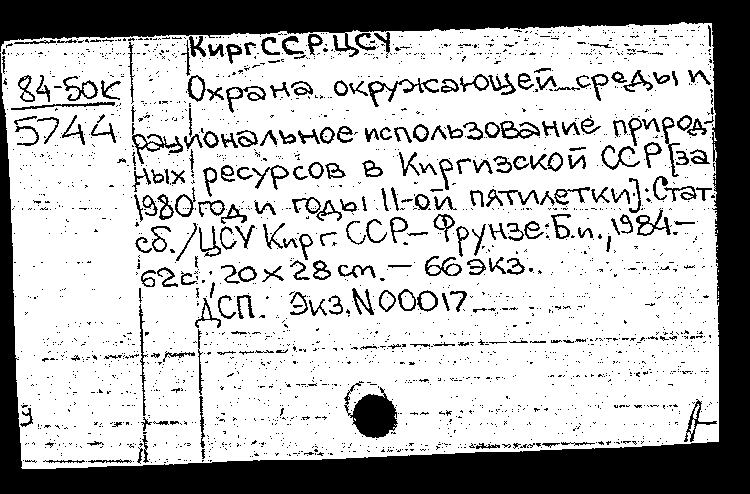 Кирг.ССР.ЦСУ
84-50к
5744
Охрана окружающей среды и
рациональное использование природ-
ных ресурсов в Киргизской ССР [за
1980 год и годы 11-ой пятилетки]: Стат.
сб./ЦСУ Кирг. ССР.- Фрунзе: Б.и., 1984.-
62с.; 20 x 28 cm. - 66 экз.
ДСП. Экз. N 00017.